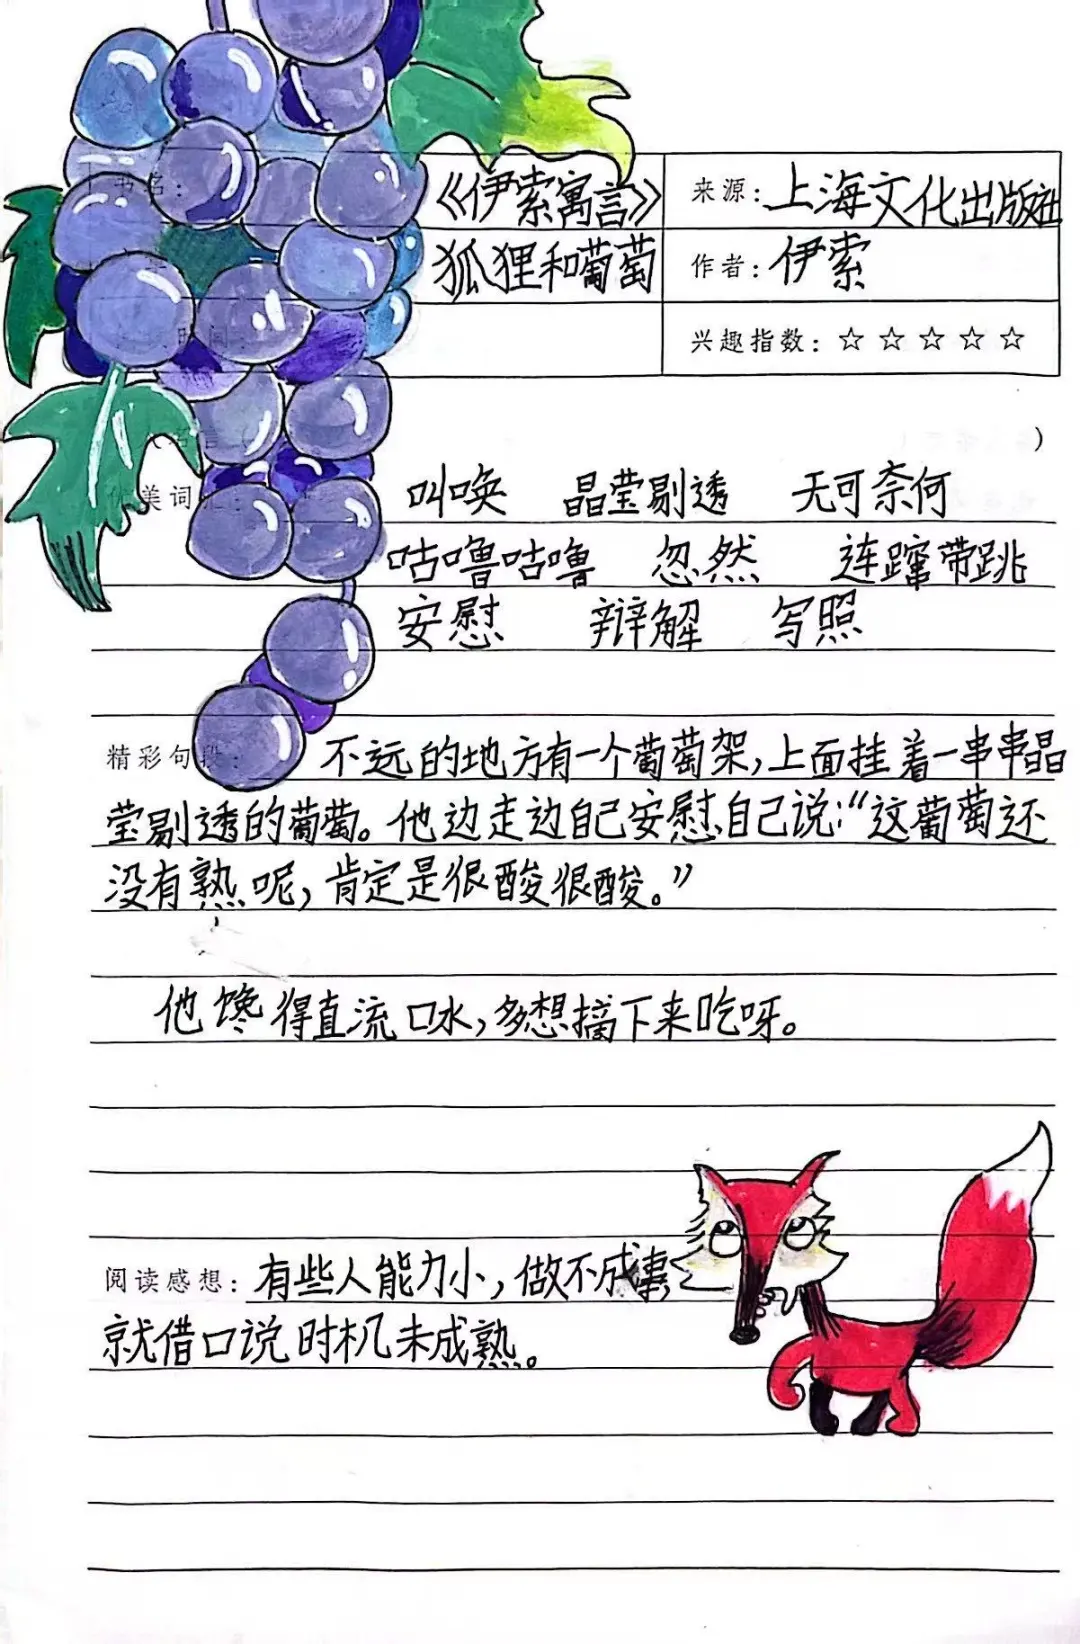 书名： 《伊索寓言》 来源：上海文化出版社
狐狸和葡萄 作者：伊索
时间： 兴趣指数：☆ ☆ ☆ ☆ ☆
）
优美词汇： 叫唤 晶莹剔透 无可奈何
咕噜咕噜 忽然 连蹿带跳
安慰 辩解 写照
精彩句段： 不远的地方有一个葡萄架，上面挂着一串串晶
莹剔透的葡萄。他边走边自己安慰自己说：“这葡萄还
没有熟呢，肯定是很酸很酸。”
他馋得直流口水，多想摘下来吃呀。
阅读感想：有些人能力小，做不成事
就借口说时机未成熟。